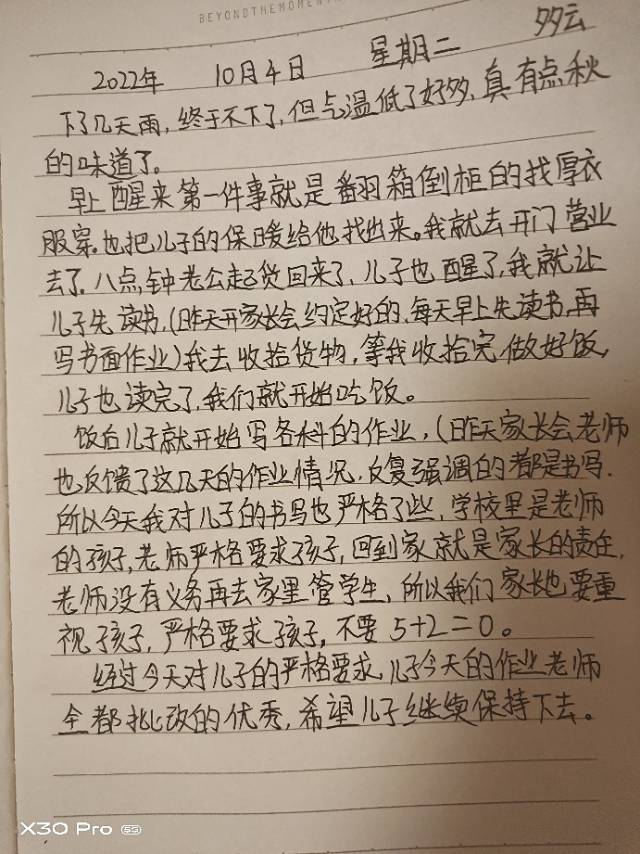 BEYOND THE MOMENT
2022年 10月4日 星期二 多云
下了几天雨,终于不下了,但气温低了好多,真有点秋
的味道了。
早上醒来第一件事就是翻箱倒柜的找厚衣
服穿。也把儿子的保暖给他找出来。我就去开门营业
去了。八点钟老公起货回来了,儿子也醒了,我就让
儿子先读书,(昨天开家长会约定好的,每天早上先读书,再
写书面作业)我去收拾货物,等我收拾完做好饭,
儿子也读完了,我们就开始吃饭。
饭后儿子就开始写各科的作业,(昨天家长会老师
也反馈了这几天的作业情况,反复强调的都是书写.
所以今天我对儿子的书写也严格了些,学校里是老师
的孩子,老师严格要求孩子,回到家就是家长的责任,
老师没有义务再去家里管学生,所以我们家长也要重
视孩子,严格要求孩子,不要5+2=0。
经过今天对儿子的严格要求,儿子今天的作业老师
全都批改的优秀,希望儿子继续保持下去。
X30 Pro 5G